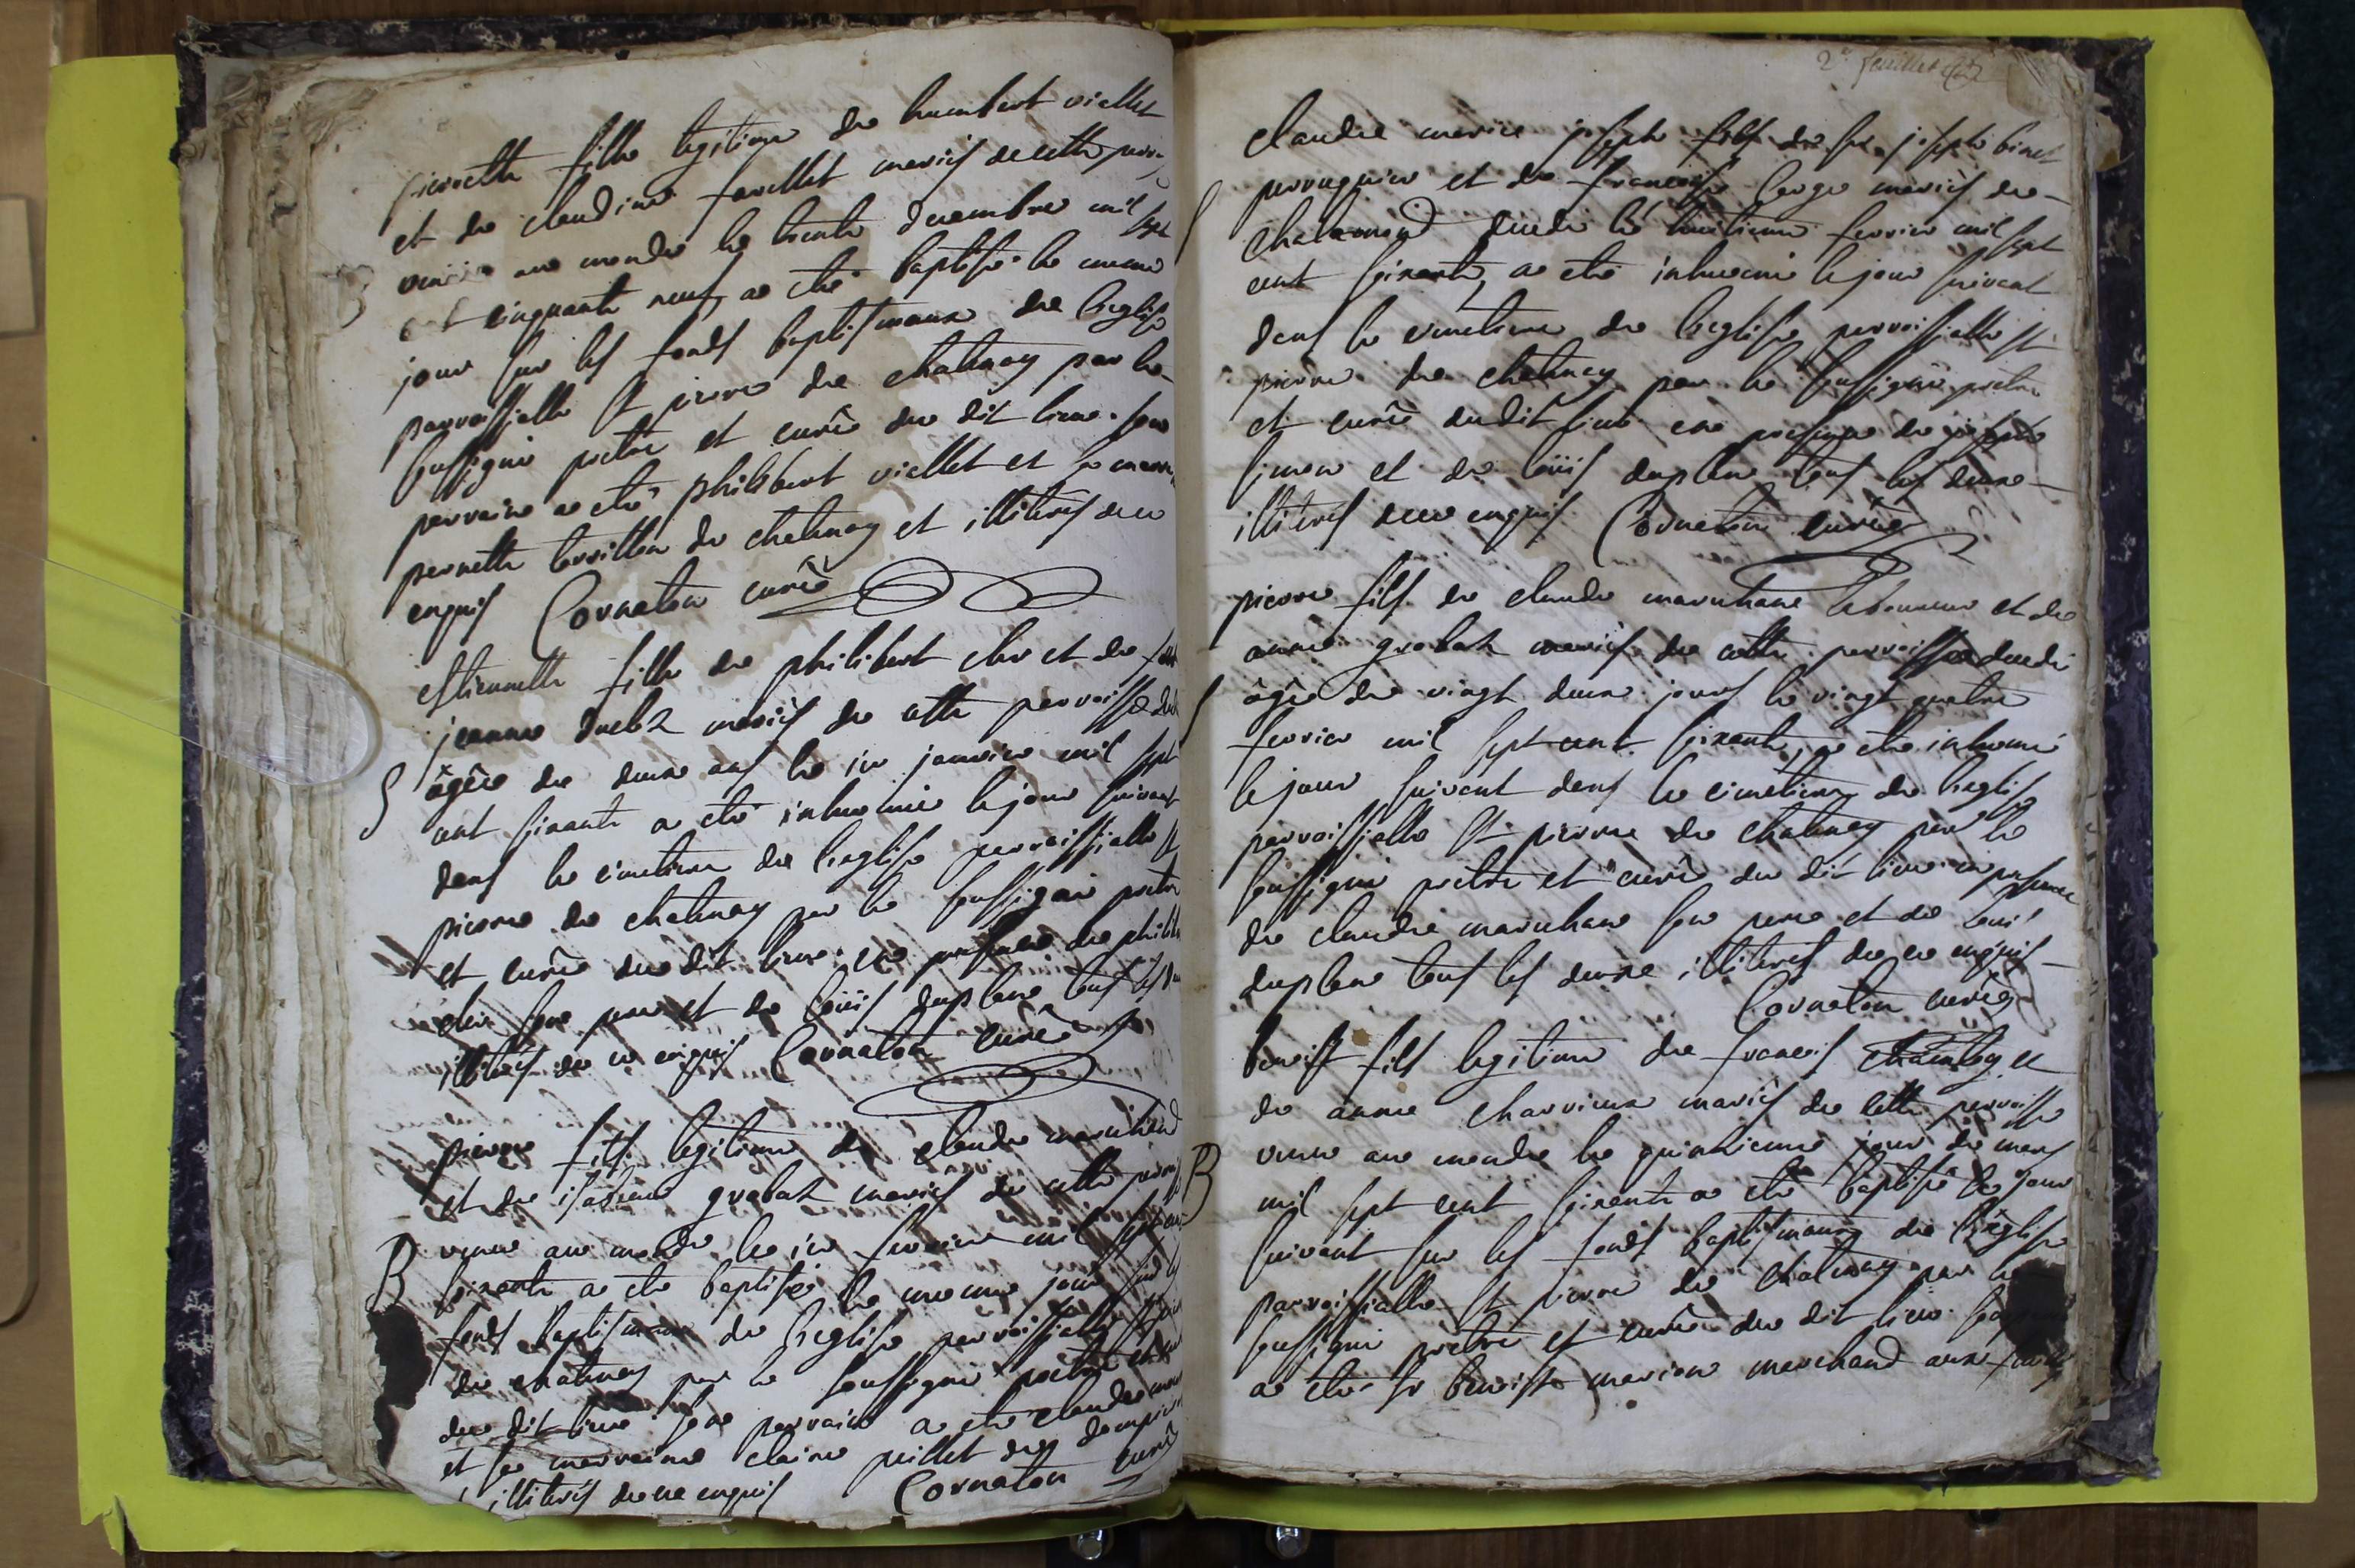 pierrette fille legitime de humbert viellet
et de claudine favellet mariés de cette parr
venue au monde le trente decembre mil sept
cent cinquante neuf, a eté baptisé le meme
jour sur les fonds baptismaux de leglise
parroissialle st pierre de chatenay par le
soussigné pretre et curé du dit lieu. son
parrain a eté philibert viellet et sa marr
pernette de chatenay et illiterés de ce
enquis Cornaton curé
estiennette fille de philibert cler et de
jeanne mariés de cette parroisse
âgée de deux ans le ier janvier mil sept
cent soixante a eté inhumée le jour suivant
dans le cimetiere de leglise parroissialle st
pierre de chatenay par le soussigné pretre
et curé du dit lieu en presence de philib
cler son pere et de loüis duplan tous les
illiterés de ce enquis Cornaton curé
pierre fils legitime de claude marechand
et de grabat mariés de cette parrois
venu au monde le ier fevrier mil sept cent
soixante a eté baptisé le meme jour sur les
fonds baptismaux de leglise parroissialle st pierre
de chatenay par le soussigné pretre et curé
du dit lieu son parrain a eté claude
et sa marraine claire puillet de dompierre
illiterés de ce enquis Cornaton curé
2e feuillet
claude marie joseph fils de feu joseph binet
perruquier et de françoise mariés de
chalamond decedé le huitieme fevrier mil sept
cent soixante, a eté inhumé le jour suivant
dans le cimetiere de leglise parroissialle st
pierre de chatenay par le soussigné pretre
et curé dudit lieu en presence de
simon et de loüis duplan tous les deux
illiterés de ce enquis Cornaton curé
pierre fils de claude marechand et de
anne grabat mariés de cette parroisse decedé
âgé de vingt deux jours le vingt quatre
fevrier mil sept cent soixante, a eté inhumé
le jour suivant dans le cimetiere de leglise
parroissialle st pierre de chatenay par le
soussigné pretre et curé du dit lieu en presence
de claude marechand son pere et de loüis
duplan tous les deux illiterés de ce enquis
Cornaton curé
benoist fils legitime de françois et
de anne charvieux mariés de cette parroisse
venu au monde le quinzieme jour de mars
mil sept cent soixante a eté baptisé le jour
suivant sur les fonds baptismaux de leglise
parroissialle st pierre de chatenay par le
soussigné pretre et curé du dit lieu
a eté sr benoist marion marchand aux
B
S
B